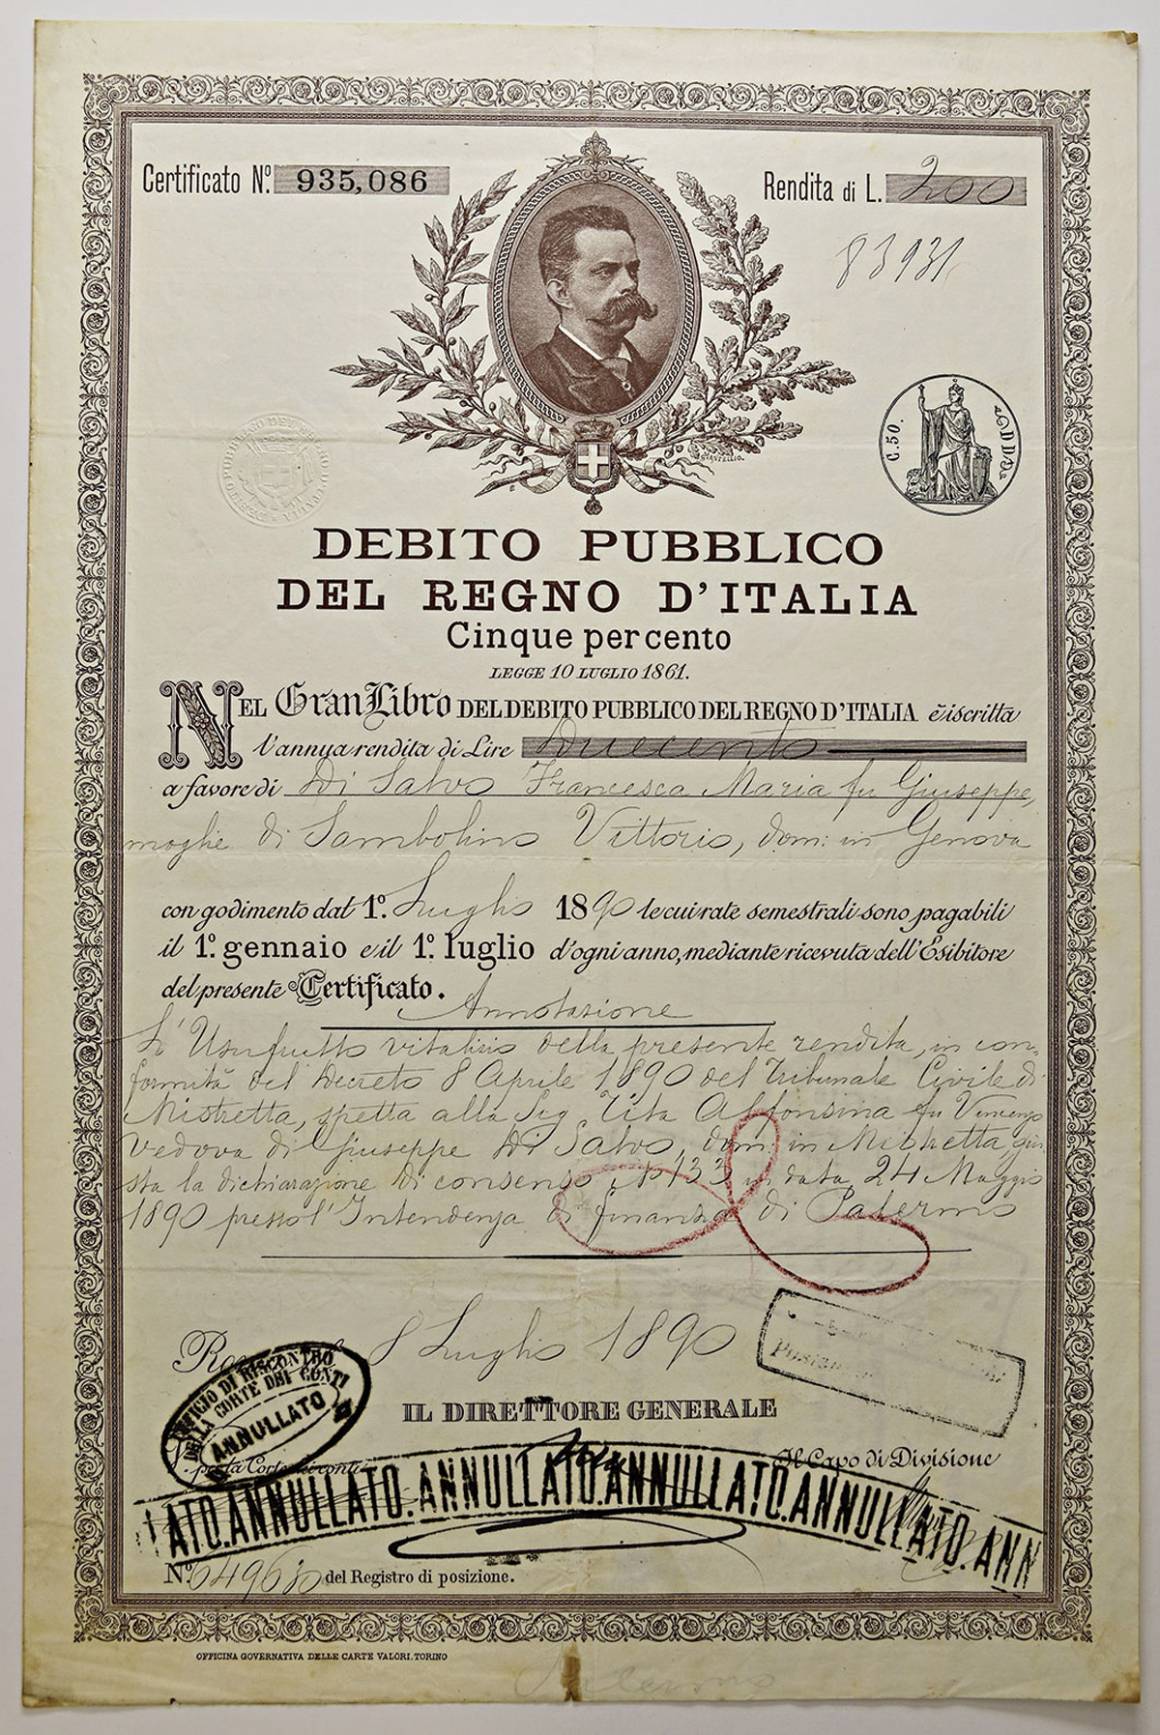 Certificato Nº. 935,086
Rendita di L. 200
83931
C. 50.
DEBITO PUBBLICO
DEL REGNO D'ITALIA
Cinque per cento
LEGGE 10 LUGLIO 1861.
NEL Gran Libro DEL DEBITO PUBBLICO DEL REGNO D'ITALIA è iscritta
l'annua rendita di Lire Duecento
a favore di Di Salvo Francesca Maria fu Giuseppe,
moglie di Sambolino Vittorio, dom: in Genova
con godimento dal 1º. Luglio 1890 le cui rate semestrali sono pagabili
il 1º. gennaio e il 1º. luglio d'ogni anno, mediante ricevuta dell'Esibitore
del presente Certificato.
Annotazione
L'Usufrutto vitalizio della presente rendita, in con-
formità del Decreto 8 Aprile 1890 del Tribunale Civile di
Mistretta, spetta alla Sig. Tita Alfonsina fu Vincenzo
vedova di Giuseppe Di Salvo, dom: in Mistretta, giu-
sta la dichiarazione di consenso Nº 133 in data 24 Maggio
1890 presso l'Intendenza di finanza di Palermo
Roma 8 Luglio 1890
UFFICIO DI RISCONTRO
DELLA CORTE DEI CONTI
ANNULLATO
IL DIRETTORE GENERALE
Vº. per la Corte dei conti
Il Capo di Divisione
ATO.ANNULLATO.ANNULLATO.ANNULLATO.ANNULLATO.ANN
Nº. del Registro di posizione.
OFFICINA GOVERNATIVA DELLE CARTE VALORI. TORINO
Palermo